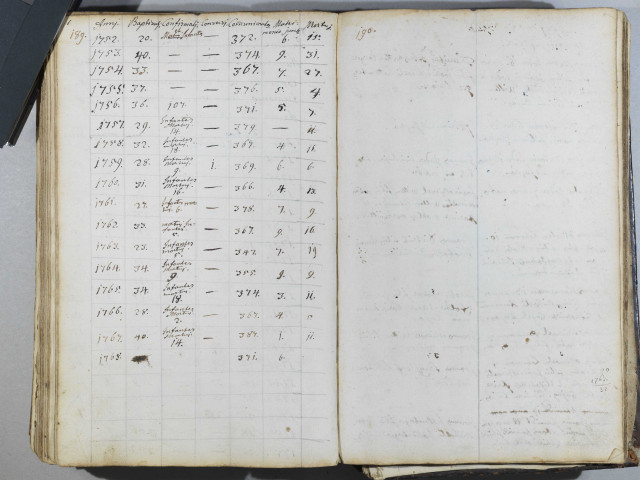 189. Anni Baptizati Confirmati Conversi Communicantes Matrimonio Mortui
1752. 20. — 372. 6. 15.
1753. 40. — — 374. 9. 31.
1754. 33. — — 367. 7. 27.
1755. 37. — — 376. 5. 4
1756. 36. 107. — 371. 5. 7.
1757. 29. Infantes Mortui 14. — 379. — 4.
1758. 32. Infantes 18. — 367. 4. 11.
1759. 28. Infantes Mortui 9. 1. 369. 6. 6.
1760. 31. Infantes Mortui 16. — 366. 4. 12.
1761. 27. 6. — 378. 7. 9.
1762. 33. mortui 5. — 367. 9. 16.
1763. 23. Infantes mortui 5. — 347. 7. 19
1764. 34. Infantes Mortui 9. — 355. 9. 9.
1765. 34. Infantes mortui 18. — 374. 3. 11.
1766. 28. Infantes Mortui 2. — 367. 4.
1767. 40. Infantes Mortui 14. — 387. 1. 11.
1768. 371. 6.
190.